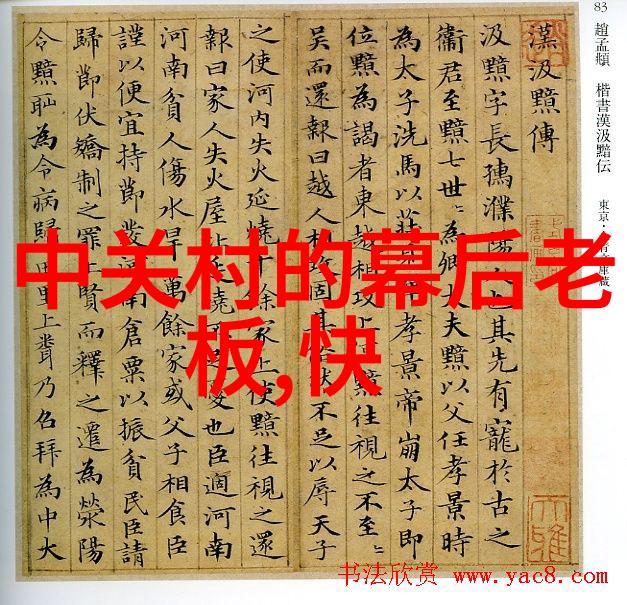 83 趙孟頫 楷書漢汲黯伝 東京・青文庫蔵
漢汲黯傳
汲黯字長孺濮陽人也其先有寵於古之
衞君至黯七世〻為卿大夫黯以父任孝景時
為太子洗馬以莊孝景帝崩太子即
位黯為謁者東越相攻上黯往視之不至〻
吳而還報曰越人相攻固其然不足以辱天子
之使河内失火延燒千餘家上使黯往視之還
報曰家人失火屋比延燒不憂也臣適河南
河南貧人傷水旱萬餘家或父子相食臣
謹以便宜持節發河南倉粟以振貧民臣請
歸節伏矯制之罪上賢而釋之遷為滎陽
令黯恥為令病歸田里上聞乃召拜為中大
中关村的幕后老
板,快
书法欣赏 www.yac8.com